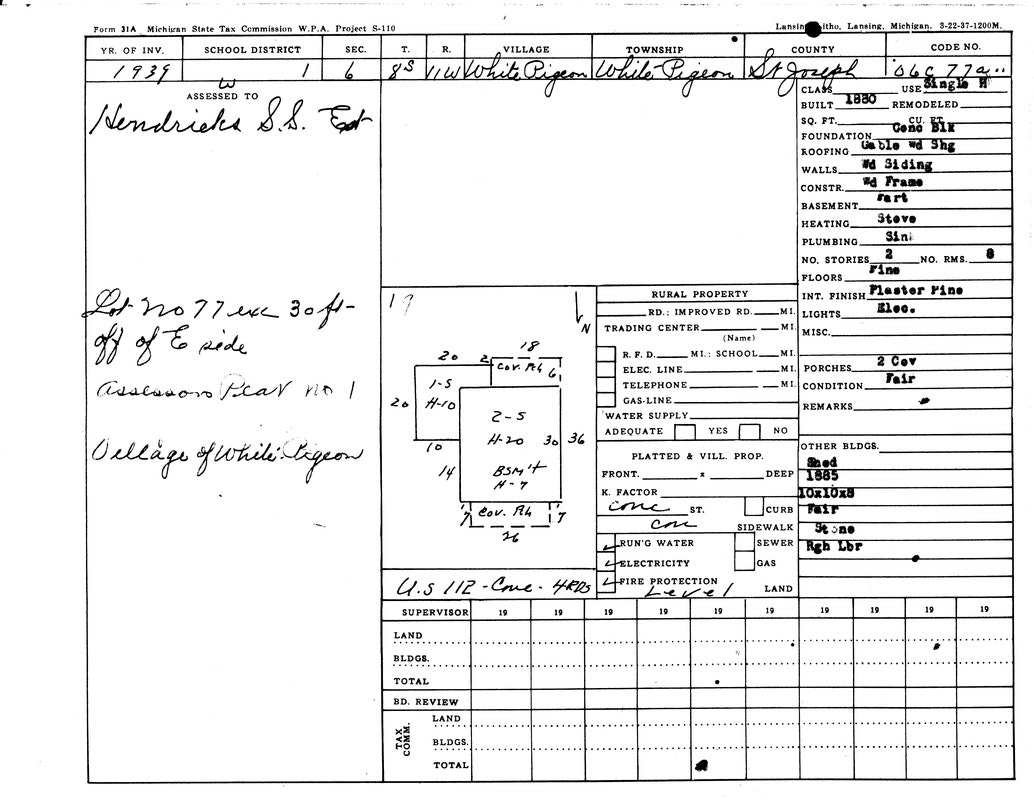 Form 31A Michigan State Tax Commission W.P.A. Project S-110
Lansing Litho, Lansing, Michigan. 3-22-37-1200M.
YR. OF INV. SCHOOL DISTRICT SEC. T. R. VILLAGE TOWNSHIP COUNTY CODE NO.
1939 1 6 8S 11W White Pigeon White Pigeon St Joseph 06C 77a
W
ASSESSED TO
Hendricks S.S. Est
Lot No 77 exc 30 ft-
off of E side
Assessors Plat no 1
Village of White Pigeon
19
N
18
20 2 Cov. Pch 6
1-5
20 H-10
2-5
H-20 30 36
10
14 BSM't
H-7
7 Cov. Pch 7
26
U.S 112 - Conc - 4RDS
RURAL PROPERTY
RD.; IMPROVED RD. MI.
TRADING CENTER MI.
(Name)
R. F. D. MI.; SCHOOL MI.
ELEC. LINE MI.
TELEPHONE MI.
GAS-LINE
WATER SUPPLY
ADEQUATE YES NO
PLATTED & VILL. PROP.
FRONT. x DEEP
K. FACTOR
conc ST. CURB
con SIDEWALK
RUN'G WATER SEWER
ELECTRICITY GAS
FIRE PROTECTION
Level LAND
CLASS USE Single H
BUILT 1880 REMODELED
SQ. FT. CU. FT.
FOUNDATION Conc Blk
ROOFING Gable Wd Shg
WALLS Wd Siding
CONSTR. Wd Frame
BASEMENT Part
HEATING Stove
PLUMBING Sink
NO. STORIES 2 NO. RMS. 8
FLOORS Pine
INT. FINISH Plaster Pine
LIGHTS Elec.
MISC.
PORCHES 2 Cov
CONDITION Fair
REMARKS
OTHER BLDGS.
Shed
1885
10x10x8
Fair
Stone
Rgh Lbr
SUPERVISOR 19 19 19 19 19 19 19 19 19
LAND
BLDGS.
TOTAL
BD. REVIEW
TAX COMM.
LAND
BLDGS.
TOTAL